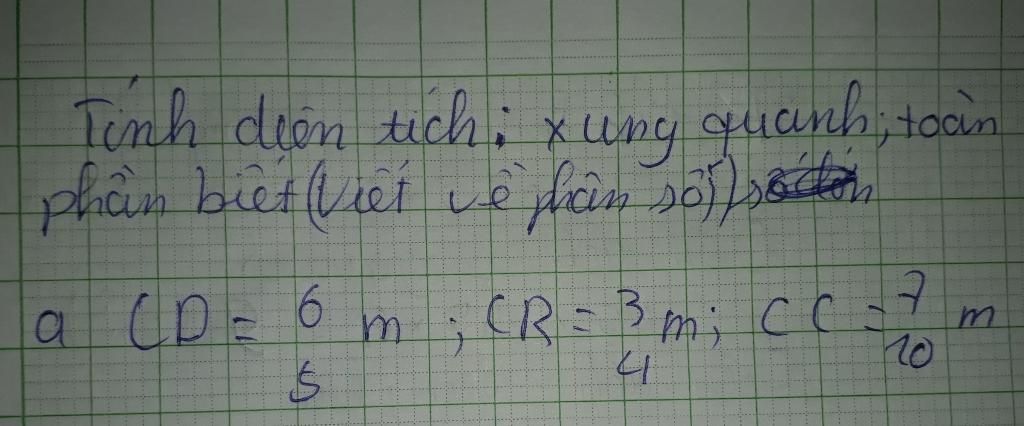 Tính diện tích: xung quanh; toàn
phần biết (Viết về phân số)
a CD = 6/5 m; CR = 3/4 m; CC = 7/10 m